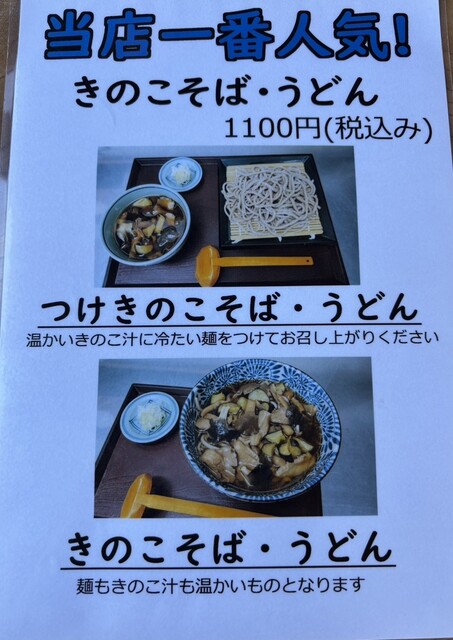 当店一番人気!
きのこそば・うどん
1100円(税込み)
つけきのこそば・うどん
温かいきのこ汁に冷たい麺をつけてお召し上がりください
きのこそば・うどん
麺もきのこ汁も温かいものとなります